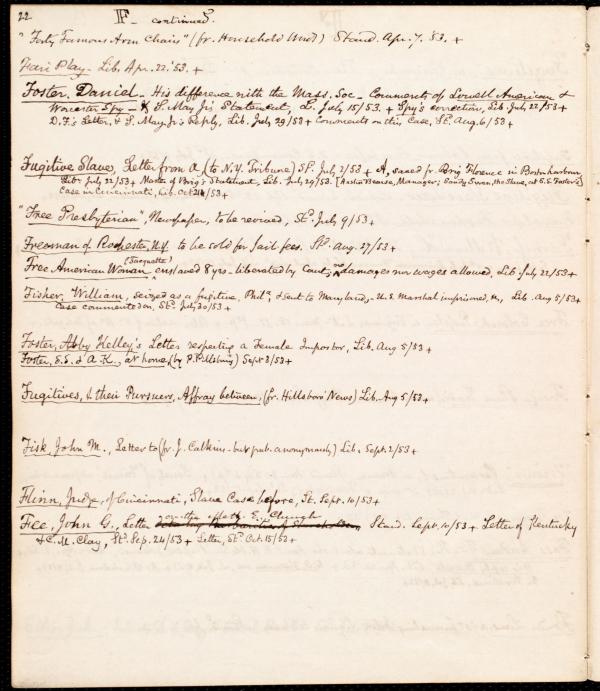 22 F- continued.
"Forty Famous Arm Chairs" (fr. Household Words) Stand. Apr. 7. 53. +
Fair Play - Lib. Apr. 22. '53. +
Foster. Daniel - His difference with the Mass. Soc - Comments of Lowell American &
Worcester Spy - & S. May Jr's Statement, L. July 15/53. + Spy's correction, Lib. July 22/53 +
D.F.'s Letter, & S. May Jr's Reply, Lib. July 29/53 + Comments on this Case, St. Aug. 6/53 +
Fugitive Slave, Letter from a (to N.Y. Tribune) St. July 2/53 + A, saved fr. Brig Florence in Boston harbour
Lib. July 22/53 + Master of Brig's Statement, Lib. July 29/53. [Austin Bearse, Manager; Sandy Swan, the Slave, at S.S. Foster's]
Case in Cincinnati, Lib. Oct. 21/53 +
"Free Presbyterian", Newspaper, to be revived, St. July 9/53 +
Freeman of Rochester, N.Y. to be sold for Jail fees. St. Aug. 27/53 +
Free American Woman (Jacquette) enslaved 8 yrs - liberated by Court, no damages nor wages allowed, Lib. July 22/53 +
Fisher, William, seized as a fugitive, Phila. & sent to Maryland, - U.S. Marshal imprisoned, &c, Lib. Aug 5/53 +
Case commented on, St. July 30/53 +
Foster, Abby Kelley's Letter respecting a Female Impostor, Lib. Aug 5/53 +
Foster, S.S. & A.K., at home, (by P. Pillsbury) Sept 2/53 +
Fugitives, & their Pursuers, Affray between, (fr. Hillsboro' News) Lib. Aug 5/53 +
Fisk, John M., Letter to (fr. J. Calkins - but pub. anonymously) Lib. Sept. 2/53 +
Flinn, Judge, of Cincinnati, Slave Case before, St. Sept. 10/53 +
Fee, John G., Letter on the Meth. E. Church Stand. Sept. 10/53 + Letter of Kentucky
& C. M. Clay, St. Sep. 24/53 + Letter, St. Oct. 15/52 +